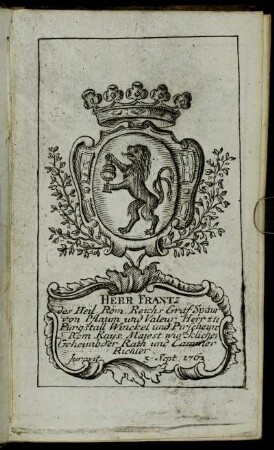 HERR FRANTZ
des Heil Röm. Reichs Graf Spaur
von Pflaum und Valeur, Herr zu
Purgstall Winckel und
Röm. Kays. Majest würcklicher
Geheimbder Rath und Cammer
Richter.
Juravit 5. Sept. 1763